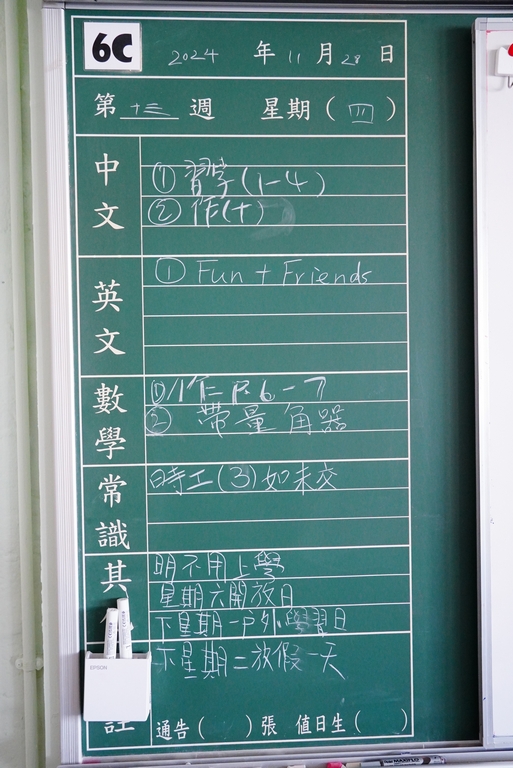 6C 2024 年 11 月 28 日
第 十三 週 星期 ( 四 )
中文
① 習學 (1-4)
② 作(十)
英文
① Fun + Friends
數學
① 作 P.6-7
② 帶量角器
常識
時工(3)如未交
其
明不用上學
星期六開放日
下星期一戶外學習日
下星期二放假一天
EPSON
註
通告 ( ) 張 值日生 ( )